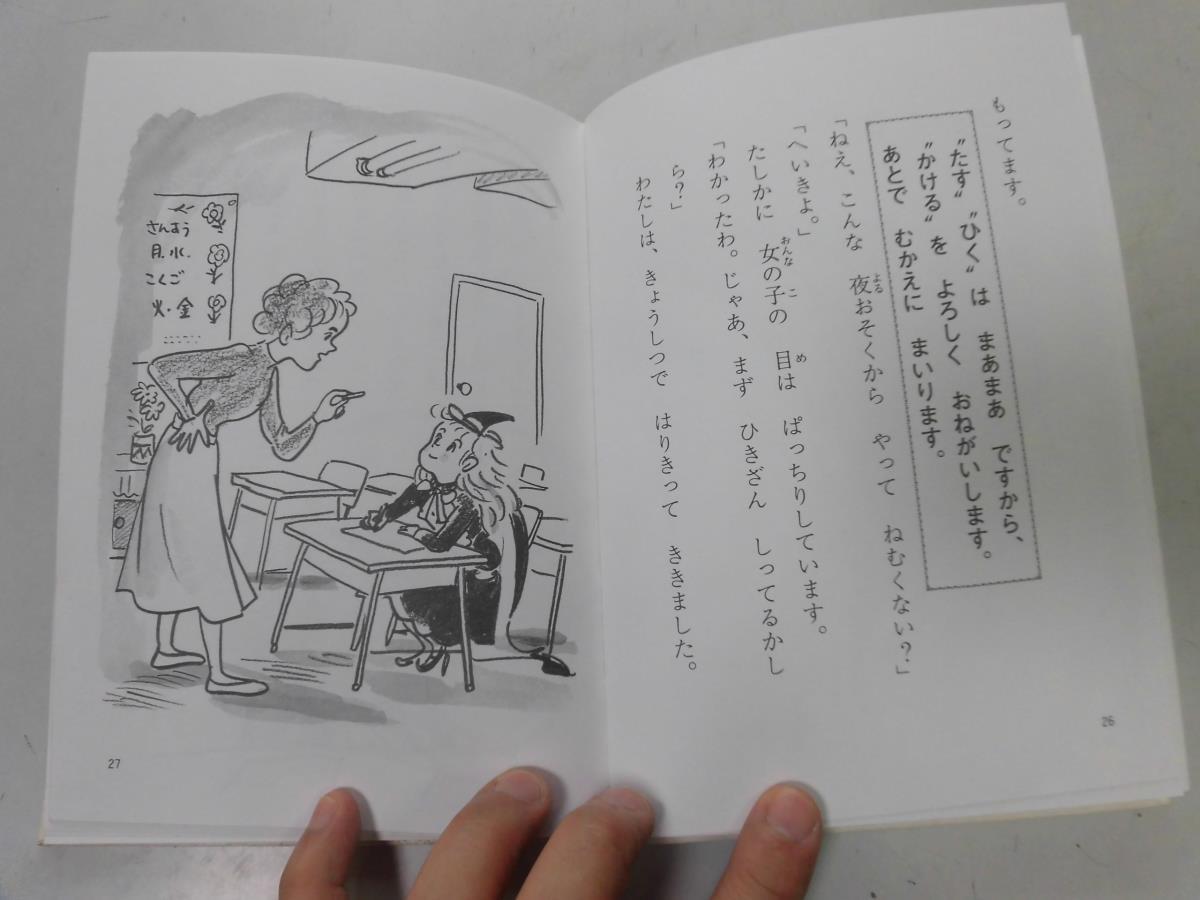 もってます。
“たす”“ひく”は まあまあ ですから、
“かける”を よろしく おねがいします。
あとで むかえに まいります。
「ねえ、こんな 夜おそくから やって ねむくない？」
よる
「へいきよ。」
たしかに 女の子の 目は ぱっちりしています。
おんな こ め
「わかったわ。じゃあ、まず ひきざん しってるかし
ら？」
わたしは、きょうしつで はりきって ききました。
26
さんすう
月.水.
こくご
火.金
27